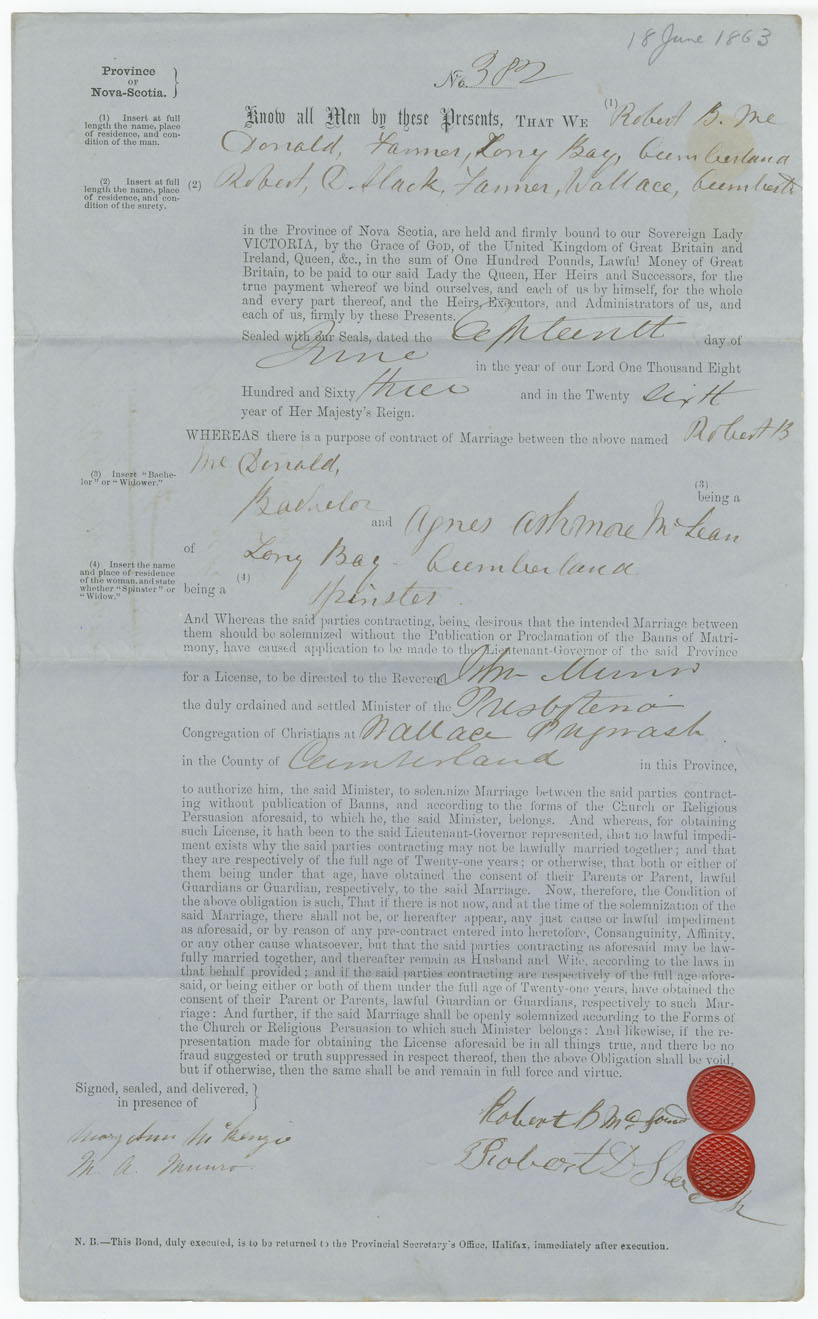 18 June 1863
Province
OF
Nova-Scotia.
No. 382
(1) Insert at full
length the name, place
of residence, and con-
dition of the man.
Know all Men by these Presents, THAT WE (1) Robert B. Mc
Donald, Farmer, Long Bay, Cumberland
(2) Insert at full
length the name, place
of residence, and con-
dition of the surety.
(2) Robert, D. Slack, Farmer, Wallace,
in the Province of Nova Scotia, are held and firmly bound to our Sovereign Lady
VICTORIA, by the Grace of GOD, of the United Kingdom of Great Britain and
Ireland, Queen, &c., in the sum of One Hundred Pounds, Lawful Money of Great
Britain, to be paid to our said Lady the Queen, Her Heirs and Successors, for the
true payment whereof we bind ourselves, and each of us by himself, for the whole
and every part thereof, and the Heirs, Executors, and Administrators of us, and
each of us, firmly by these Presents.
Sealed with our Seals, dated the day of
June in the year of our Lord One Thousand Eight
Hundred and Sixty three and in the Twenty sixth
year of Her Majesty's Reign.
WHEREAS there is a purpose of contract of Marriage between the above named Robert B
Mc Donald,
(3) Insert "Bache-
lor" or "Widower."
(3)
being a
Bachelor and Agnes Ashmore McLean
of Long Bay - Cumberland
(4) Insert the name
and place of residence
of the woman, and state
whether "Spinster" or
"Widow."
(4)
being a Spinster
And Whereas the said parties contracting, being desirous that the intended Marriage between
them should be solemnized without the Publication or Proclamation of the Banns of Matri-
mony, have caused application to be made to the Lieutenant-Governor of the said Province
for a License, to be directed to the Reverend John Munro
the duly ordained and settled Minister of the Presbyterian
Congregation of Christians at Wallace Pugwash
in the County of Cumberland in this Province,
to authorize him, the said Minister, to solemnize Marriage between the said parties contract-
ing without publication of Banns, and according to the forms of the Church or Religious
Persuasion aforesaid, to which he, the said Minister, belongs. And whereas, for obtaining
such License, it hath been to the said Lieutenant-Governor represented, that no lawful impedi-
ment exists why the said parties contracting may not be lawfully married together; and that
they are respectively of the full age of Twenty-one years; or otherwise, that both or either of
them being under that age, have obtained the consent of their Parents or Parent, lawful
Guardians or Guardian, respectively, to the said Marriage. Now, therefore, the Condition of
the above obligation is such, That if there is not now, and at the time of the solemnization of the
said Marriage, there shall not be, or hereafter appear, any just cause or lawful impediment
as aforesaid, or by reason of any pre-contract entered into heretofore, Consanguinity, Affinity,
or any other cause whatsoever, but that the said parties contracting as aforesaid may be law-
fully married together, and thereafter remain as Husband and Wife, according to the laws in
that behalf provided; and if the said parties contracting are respectively of the full age afore-
said, or being either or both of them under the full age of Twenty-one years, have obtained the
consent of their Parent or Parents, lawful Guardian or Guardians, respectively to such Mar-
riage: And further, if the said Marriage shall be openly solemnized according to the Forms of
the Church or Religious Persuasion to which such Minister belongs: And likewise, if the re-
presentation made for obtaining the License aforesaid be in all things true, and there be no
fraud suggested or truth suppressed in respect thereof, then the above Obligation shall be void,
but if otherwise, then the same shall be and remain in full force and virtue.
Signed, sealed, and delivered,
in presence of
Robert B McDonald
Mary Ann McKenzie
Robert D Slack
M. A. Munro
N. B.—This Bond, duly executed, is to be returned to the Provincial Secretary's Office, Halifax, immediately after execution.